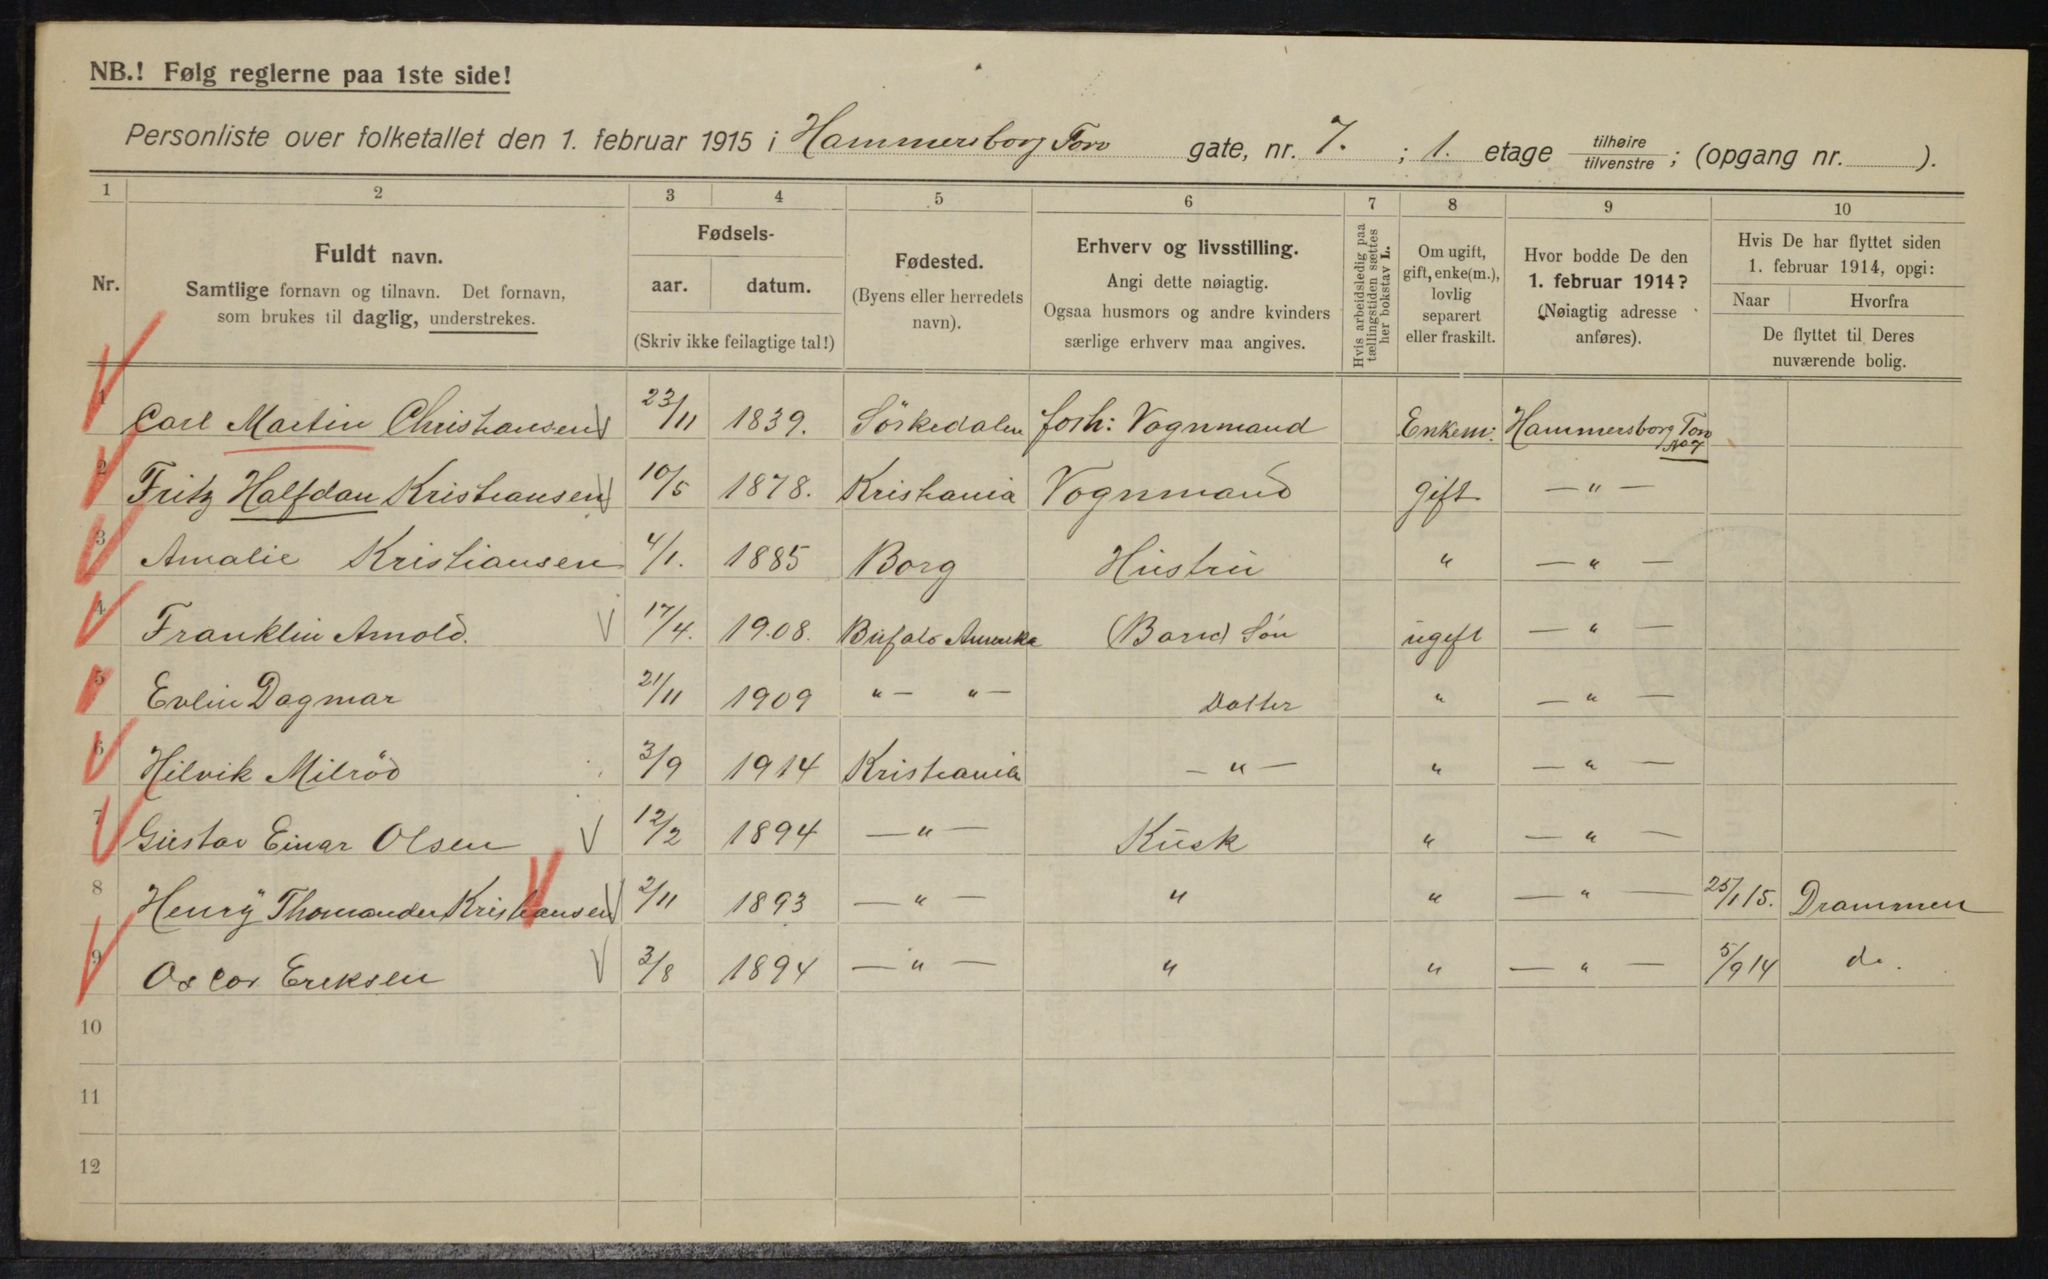 NB.! Følg reglerne paa 1ste side!
Personliste over folketallet den 1. februar 1915 i Hammersborg Torv gate, nr. 7. ; 1. etage tilhøire tilvenstre ; (opgang nr. ).
1 2 3 4 5 6 7 8 9 10
Nr.
Fuldt navn.
Samtlige fornavn og tilnavn. Det fornavn,
som brukes til daglig, understrekes.
Fødsels-
aar. datum.
(Skriv ikke feilagtige tal!)
Fødested.
(Byens eller herredets
navn).
Erhverv og livsstilling.
Angi dette nøiagtig.
Ogsaa husmors og andre kvinders
særlige erhverv maa angives.
Hvis arbeidsledig paa
tællingstiden sættes
her bokstav L.
Om ugift,
gift, enke(m.),
lovlig
separert
eller fraskilt.
Hvor bodde De den
1. februar 1914?
(Nøiagtig adresse
anføres).
Hvis De har flyttet siden
1. februar 1914, opgi:
Naar Hvorfra
De flyttet til Deres
nuværende bolig.
1 Carl Martin Christiansen 23/11 1839. Sörkedalen forh: Vognmand Enkem: Hammersborg Torv No 7
2 Fritz Halfdan Kristiansen 10/5 1878. Kristiania Vognmand gift — " —
3 Amalie Kristiansen 4/1. 1885 Borg Hustru " — " —
4 Franklin Arnold. 17/4. 1908. Bufalo Amerika (Barn) Sön ugift — " —
5 Evlin Dagmar 21/11 1909 " — " — Datter " — " —
6 Hilvik Milröd 3/9 1914 Kristiania — " — " — " —
7 Gustav Einar Olsen 12/2 1894 — " — Kusk " — " —
8 Henry Thomander Kristiansen 2/11 1893 — " — " " — " — 25/1 15. Drammen
9 Oscar Eriksen 3/8 1894 — " — " " — " — 5/9 14 do.
10
11
12